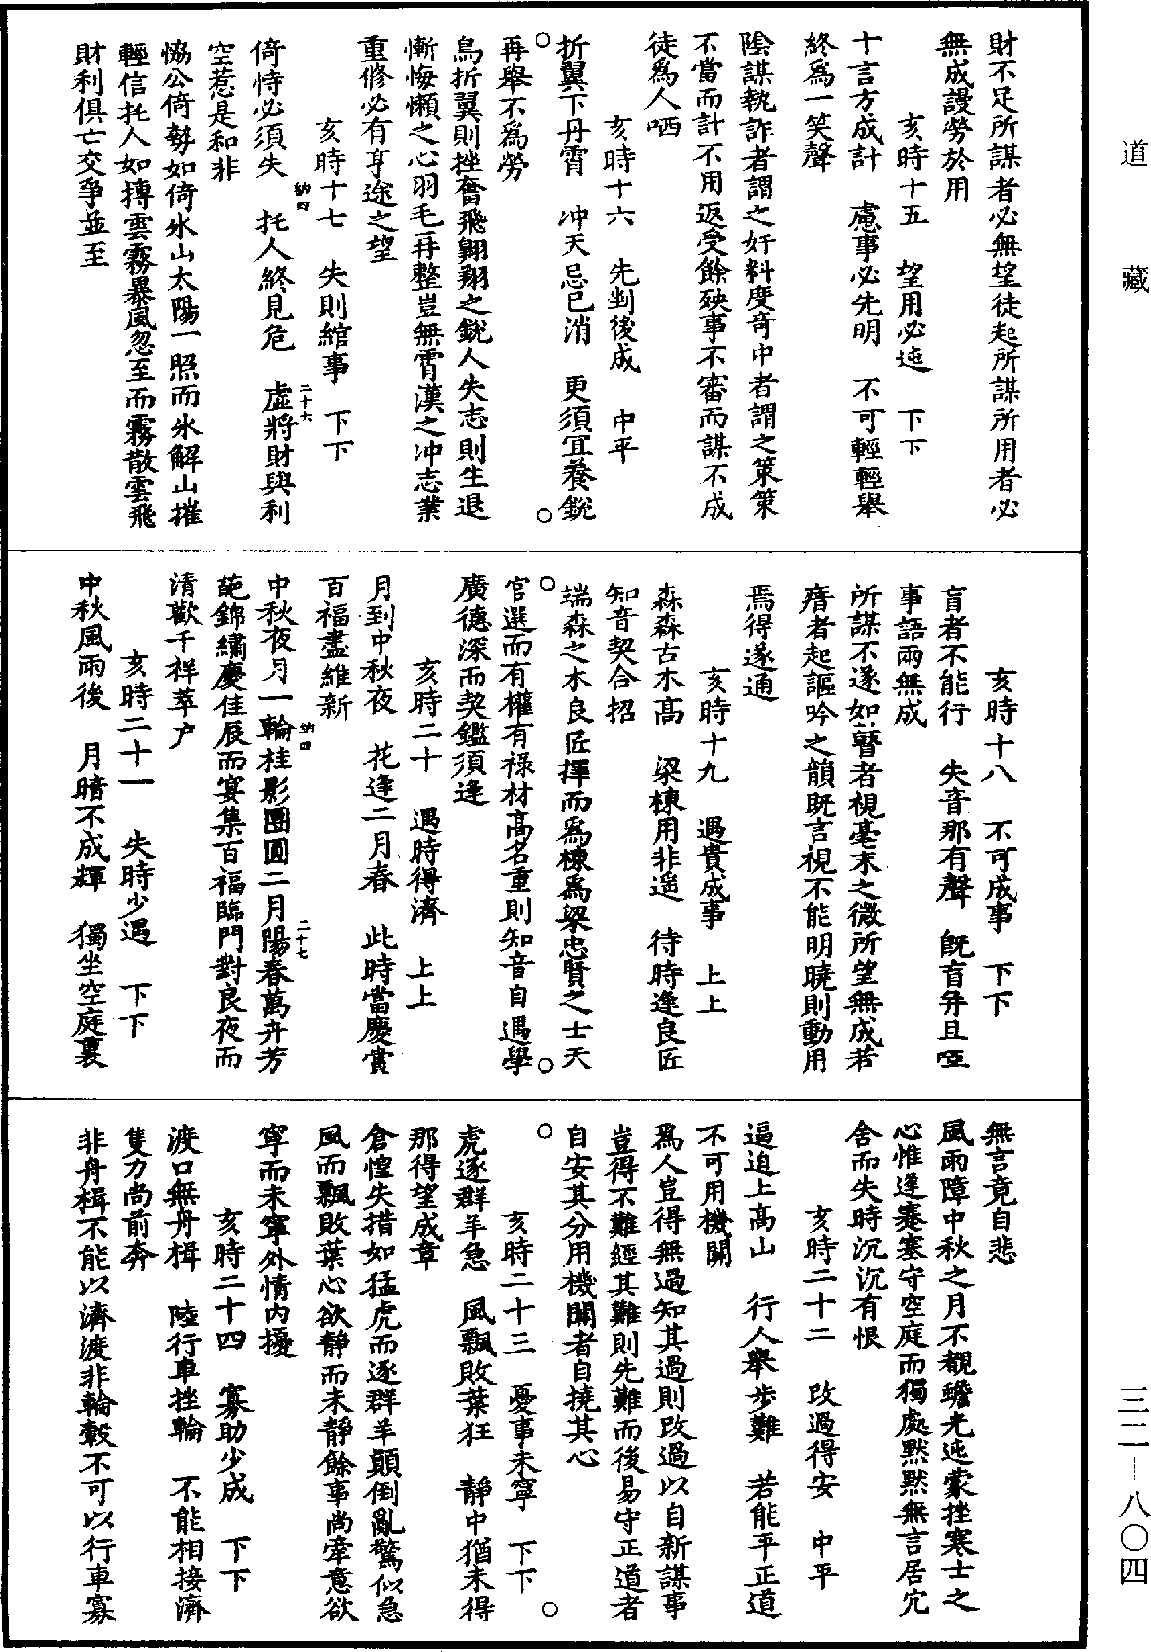 道藏
三二—八〇四
財不足所謀者必無望徒起所謀所用者必
無成謾勞於用
亥時十五　望用必迍　下下
十言方成計　慮事必先明　不可輕輕舉
終為一笑聲
陰謀執詐者謂之奸料度奇中者謂之策策
不當而計不用返受餘殃事不審而謀不成
徒為人哂
亥時十六　先剉後成　中平
折翼下丹霄　冲天忌已消　更須冝養銳
再舉不為勞
鳥折翼則挫奮飛翺翔之銳人失志則生退
慚悔懶之心羽毛再整豈無霄漢之冲志業
重修必有亨途之望
亥時十七　失則綰事　下下
倚恃必須失　托人終見危　虛將財與利
空惹是和非
納四　二十六
恊公倚勢如倚氷山太陽一照而氷解山摧
輕信托人如摶雲霧暴風忽至而霧散雲飛
財利俱亡交爭並至
亥時十八　不可成事　下下
盲者不能行　失音那有聲　旣盲并且啞
事語兩無成
所謀不遂如瞽者視毫末之微所望無成若
瘖者起謳吟之韻既言視不能明曉則動用
焉得遂通
亥時十九　遇貴成事　上上
森森古木高　梁棟用非遥　待時逢良匠
知音契合招
端森之木良匠擇而為棟為梁忠賢之士天
官選而有權有祿材高名重則知音自遇學
廣德深而契鑑須逢
亥時二十　遇時得濟　上上
月到中秋夜　花逢二月春　此時當慶賞
百福盡維新
納四　二十七
中秋夜月一輪桂影團圓二月陽春萬卉芳
葩錦繡慶佳辰而宴集百福臨門對良夜而
清歡千祥萃户
亥時二十一　失時少遇　下下
中秋風雨後　月暗不成輝　獨坐空庭裏
無言竟自悲
風雨障中秋之月不覩蟾光迍蒙挫寒士之
心惟逢蹇塞守空庭而獨處黙黙無言居宂
舍而失時沉沉有恨
亥時二十二　改過得安　中平
逼迫上高山　行人舉步難　若能平正道
不可用機關
為人豈得無過知其過則改過以自新謀事
豈得不難經其難則先難而後易守正道者
自安其分用機關者自撓其心
亥時二十三　憂事未寧　下下
虎逐群羊急　風飄敗葉狂　靜中猶未得
那得望成章
倉惶失措如猛虎而逐群羊顛倒亂驚似急
風而飄敗葉心欲靜而未靜餘事尚牽意欲
寧而未寧外情内擾
亥時二十四　寡助少成　下下
渡口無舟楫　陸行車挫輪　不能相接濟
隻力尚前奔
非舟楫不能以濟渡非輪轂不可以行車寡